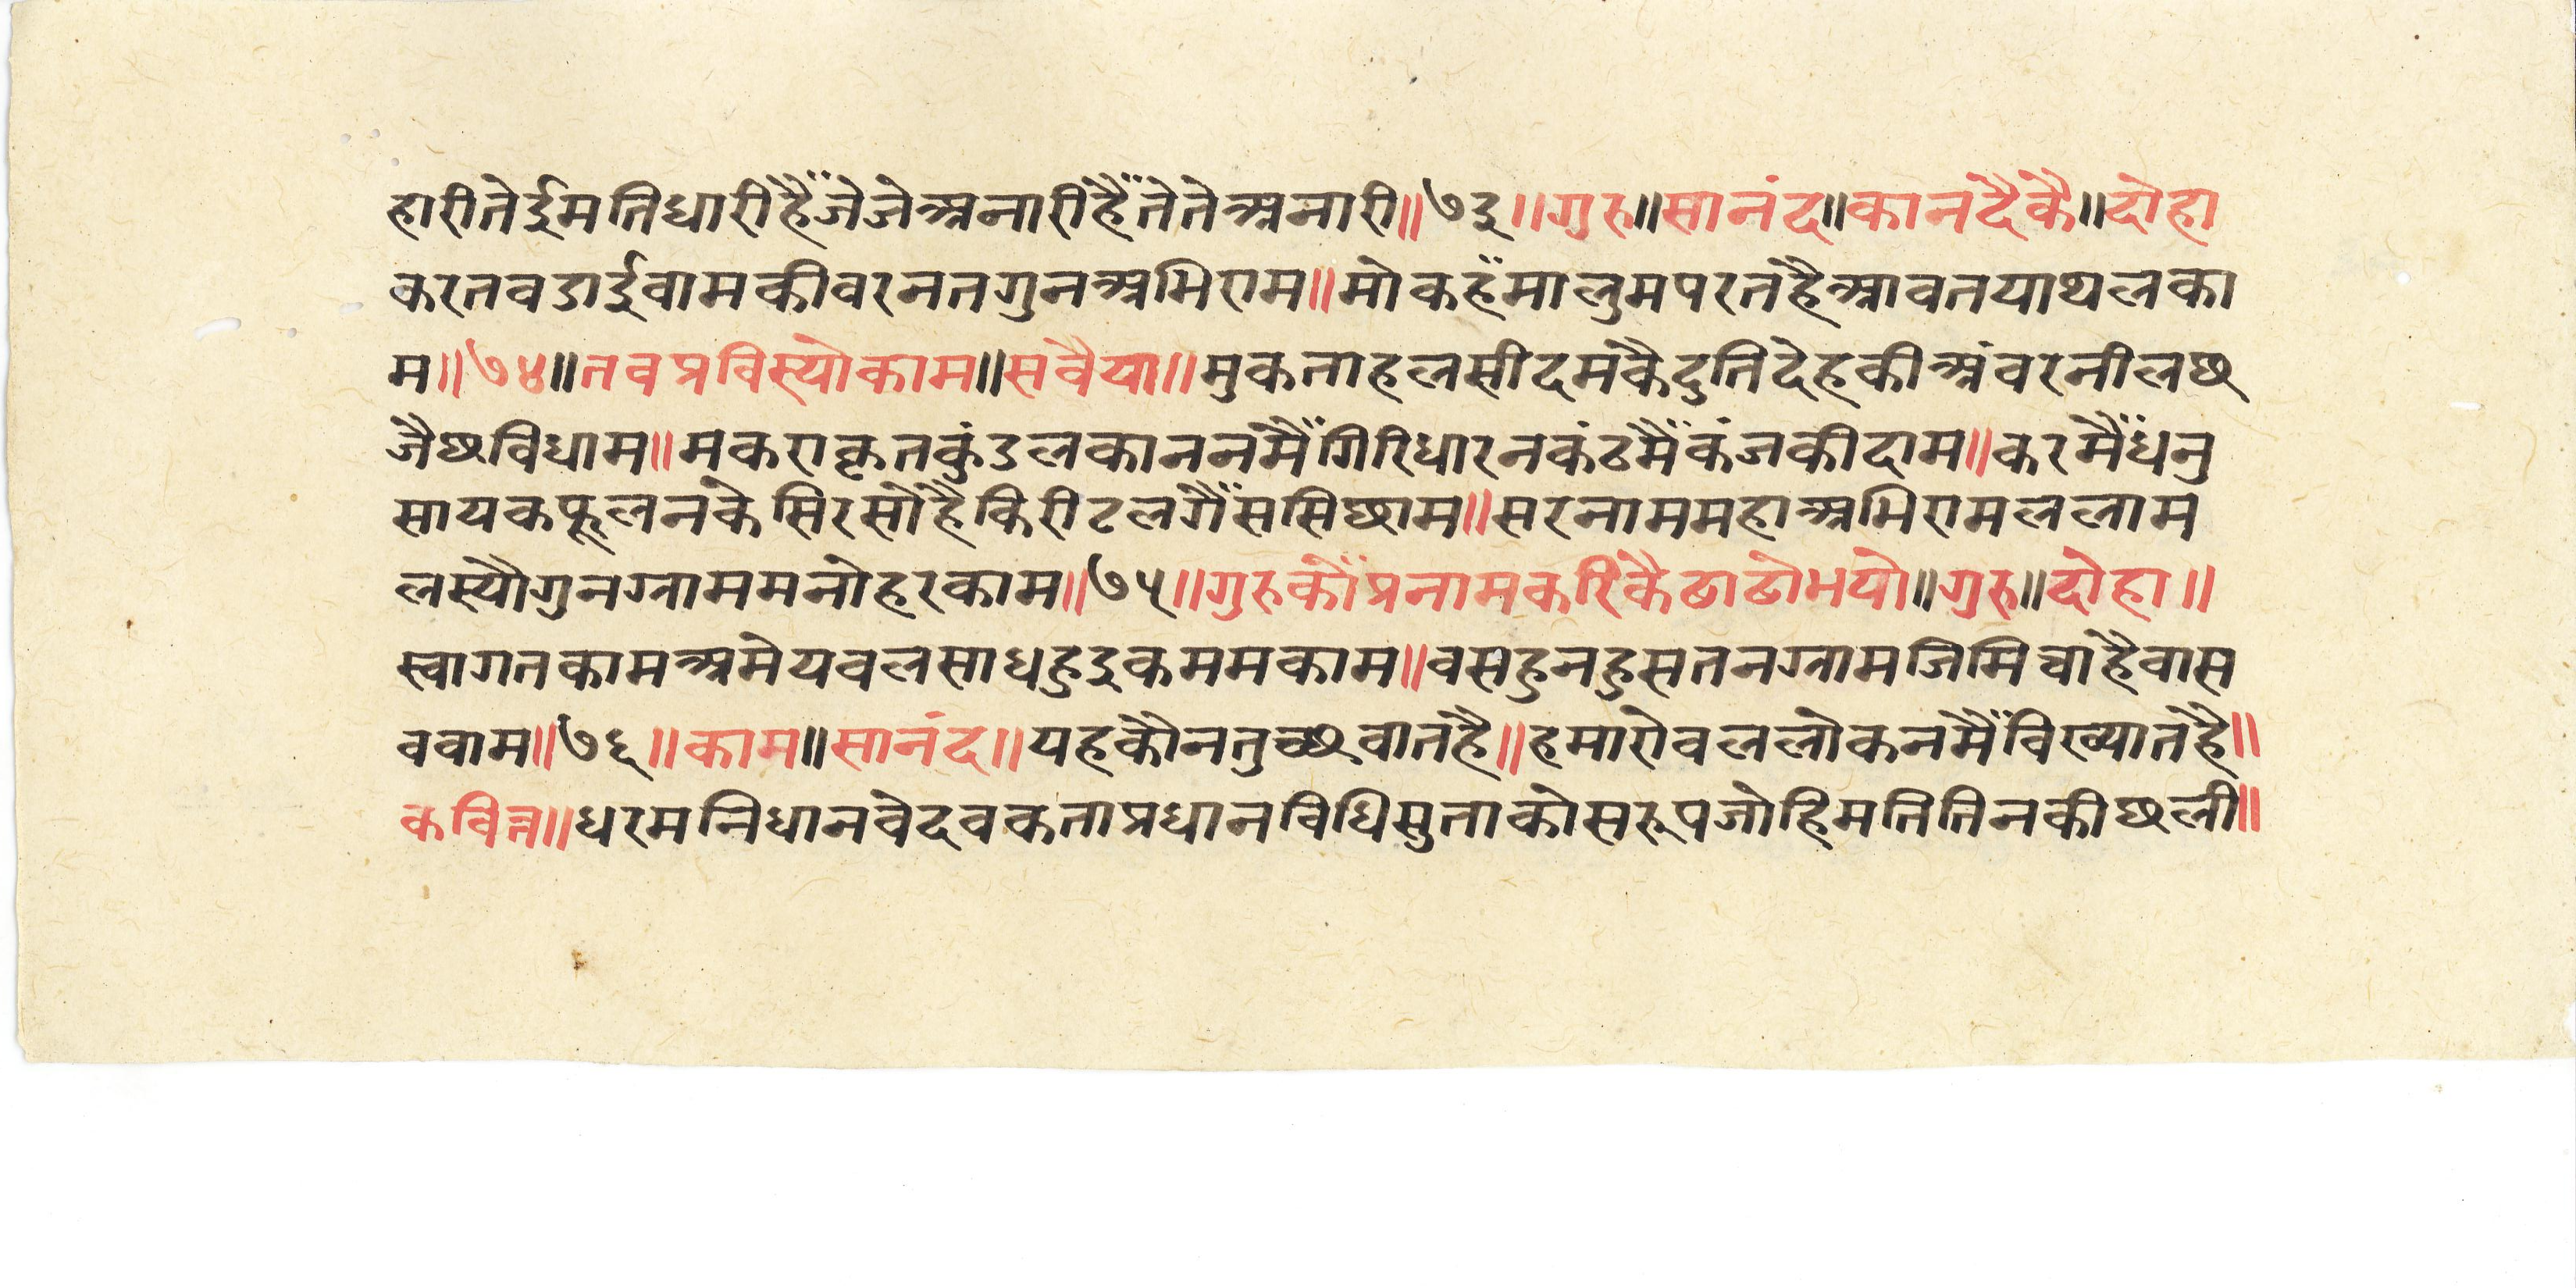 हारीतेईमतिधारीहैंजेजेअनारीहैंतेतेअनारी॥७३॥गुरु॥सानंद॥कानदैकै॥दोहा
करतवडाईवामकीवरनतगुनअभिराम॥मोकहँमालुमपरतहैआवतयाथलका
म॥७४॥तवप्रविस्योकाम॥सवैया॥मुकताहलसीदमंकैदुतिदेहकीअंवरनीलछ
जैछविधाम॥मकराकृतकुंडलकाननमैंगिरिधारनकंठमैंकंजकीदाम॥करमैंधनु
सायकफूलनकेसिरसोहैकिरीटलगैंससिछाम॥सरनाममहाअभिरामललाम
लस्यौगुनग्राममनोहरकाम॥७५॥गुरुकोंप्रनामकरिकैठाठोभयो॥गुरु॥दोहा॥
स्वागतकामअमेयवलसाधहुइकममकाम॥वसहुनहुसतनग्रामजिमिचाहैवास
ववाम॥७६॥काम॥सानंद॥यहकौनतुच्छवातहै॥हमारोवललोकनमैंविख्यातहै॥
कवित्त॥धरमनिधानवेदवकताप्रधानविधिसुताकोसरूपजोहिमतितिनकीछली॥